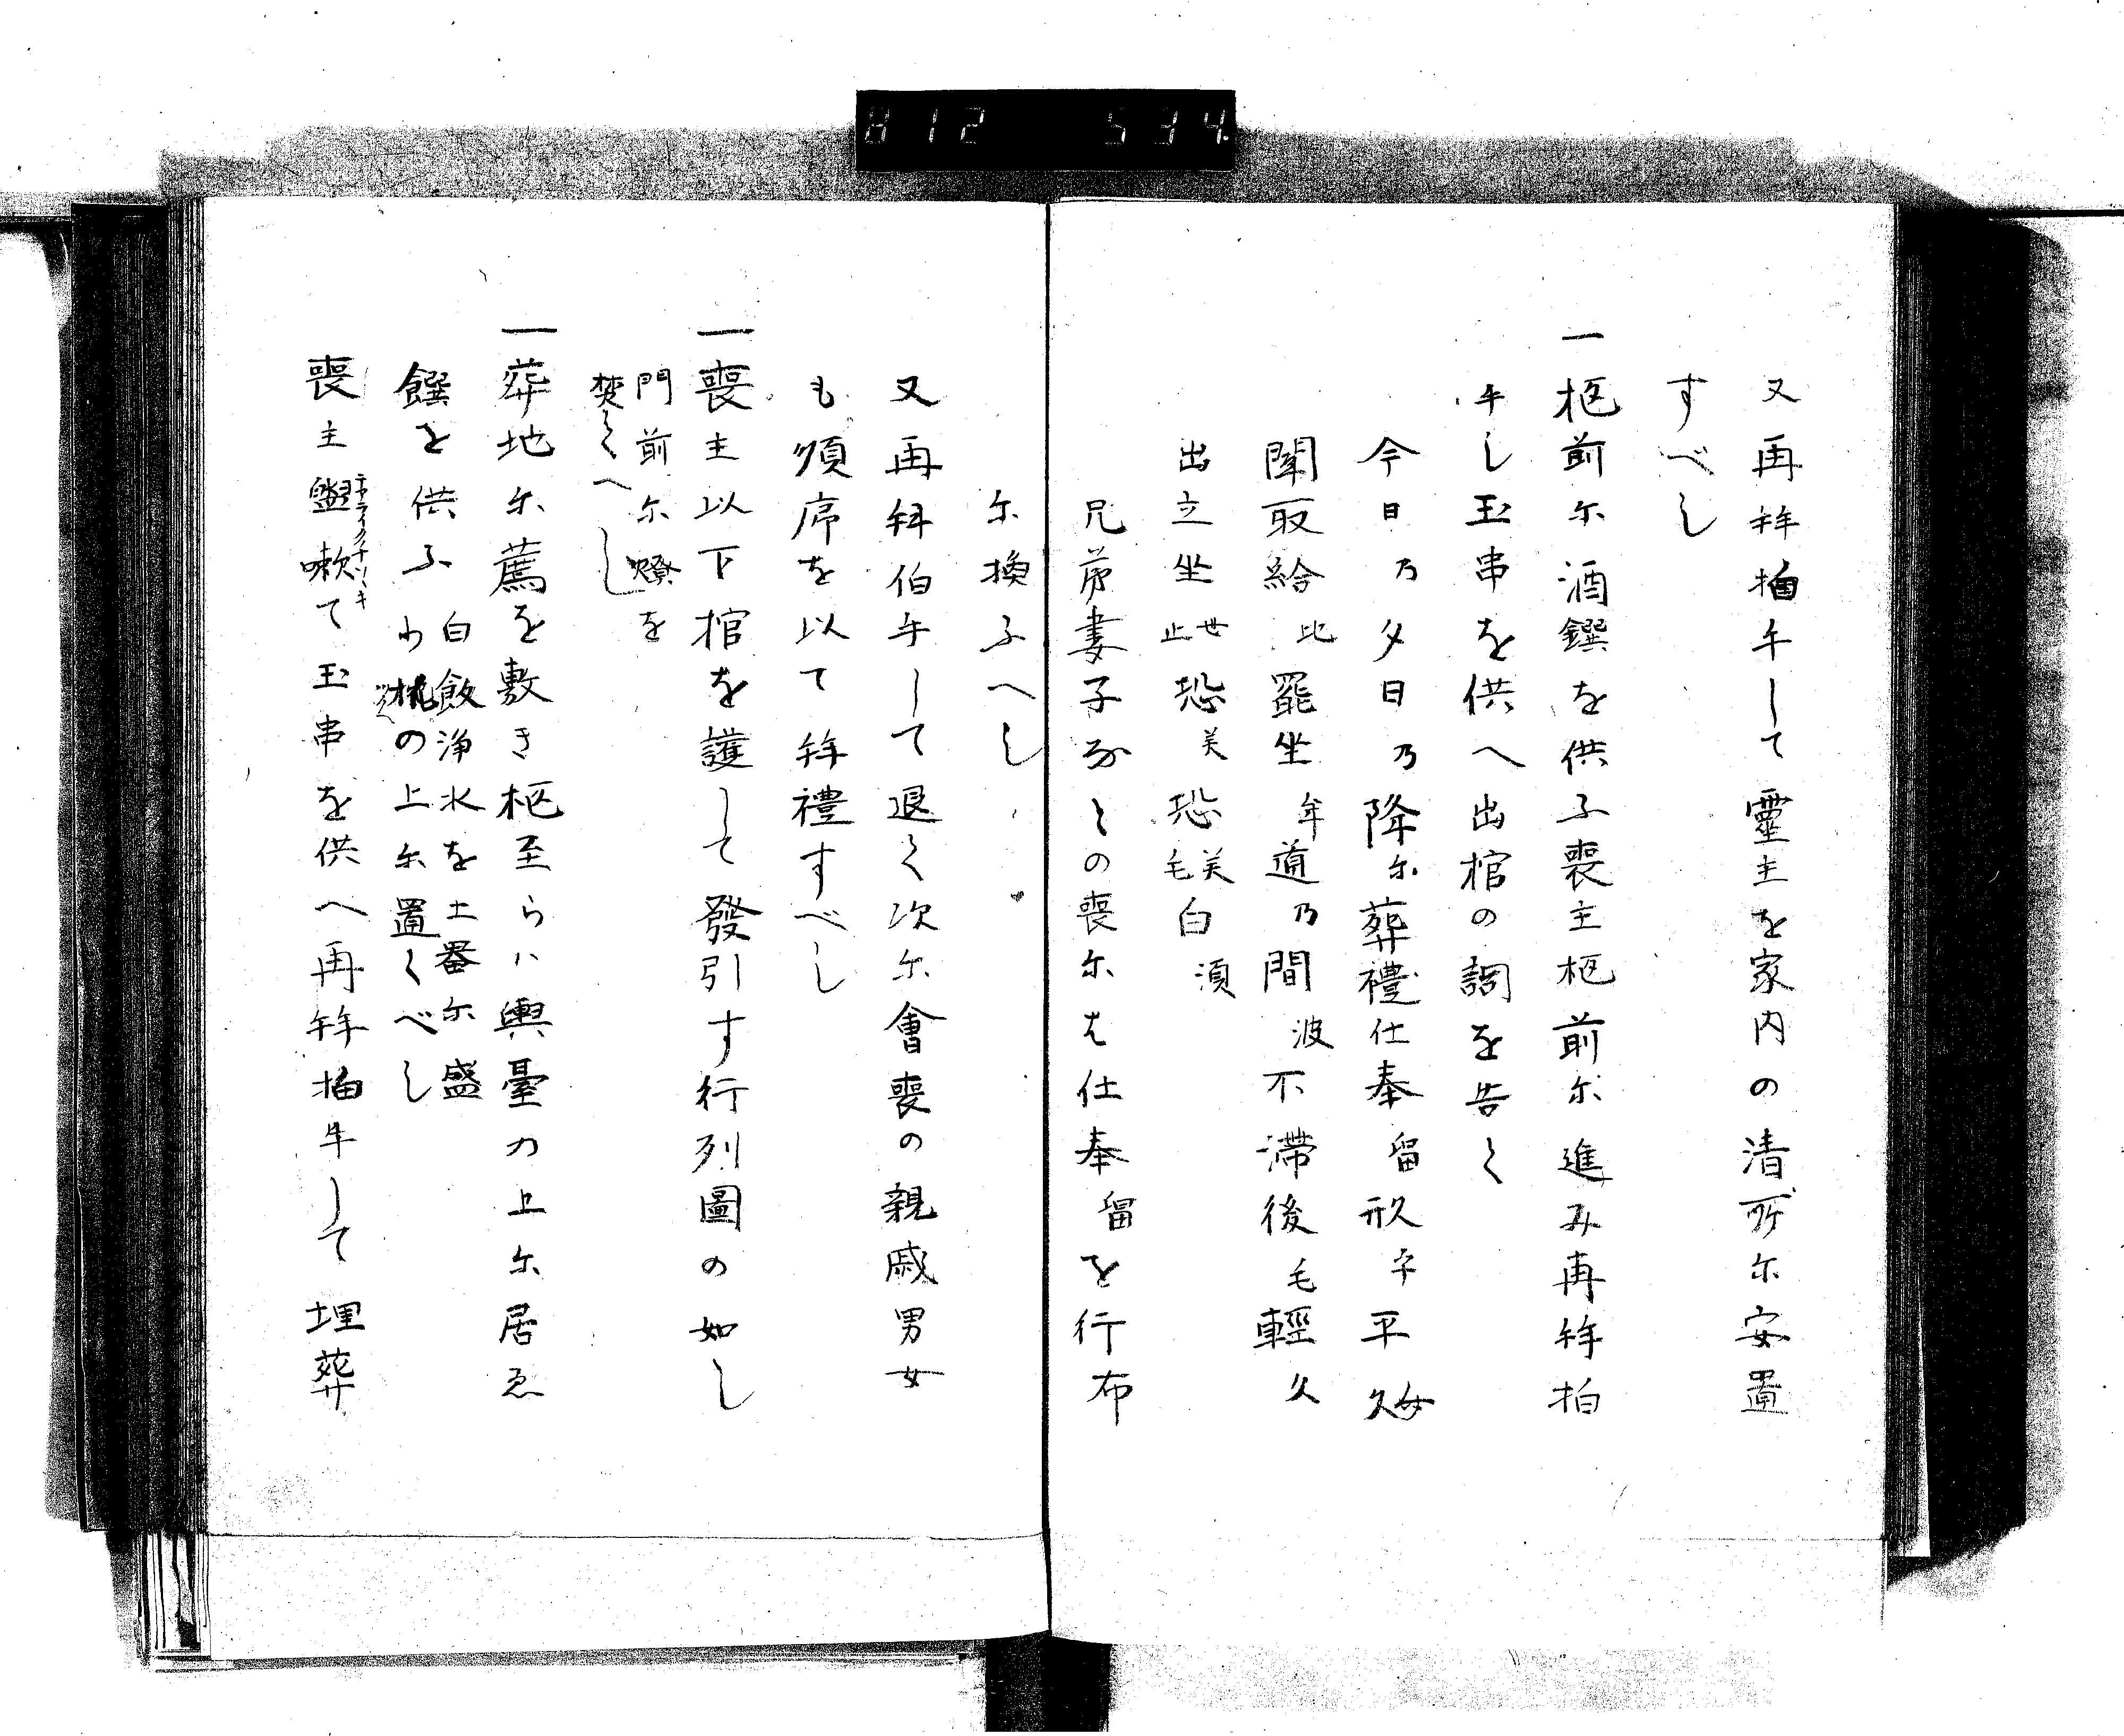 812 534.
又再拜拍手して靈主を家内の清所尓安置
すべし
一柩前尓酒饌を供ふ喪主柩前尓進み再拜拍
手し玉串を供へ出棺の詞を告く
今日乃夕日乃降尓葬禮仕奉留状乎平久安
聞取給比罷坐牟道乃間波不滞後毛輕久
出立坐世止恐美恐美毛白須
兄弟妻子なとの喪尓は仕奉留を行布
尓換ふへし
又再拜伯手して退く次尓會喪の親戚男女
も順序を以て拜禮すべし
一喪主以下棺を護して發引す行列圖の如し
門前尓燎を
焚くへし
一葬地尓薦を敷き柩至らハ輿臺の上尓居ゑ
饌を供ふ
白飯浄水を土器尓盛
の上尓置くべし
喪主盥嗽て玉串を供へ再拜拍手して埋葬